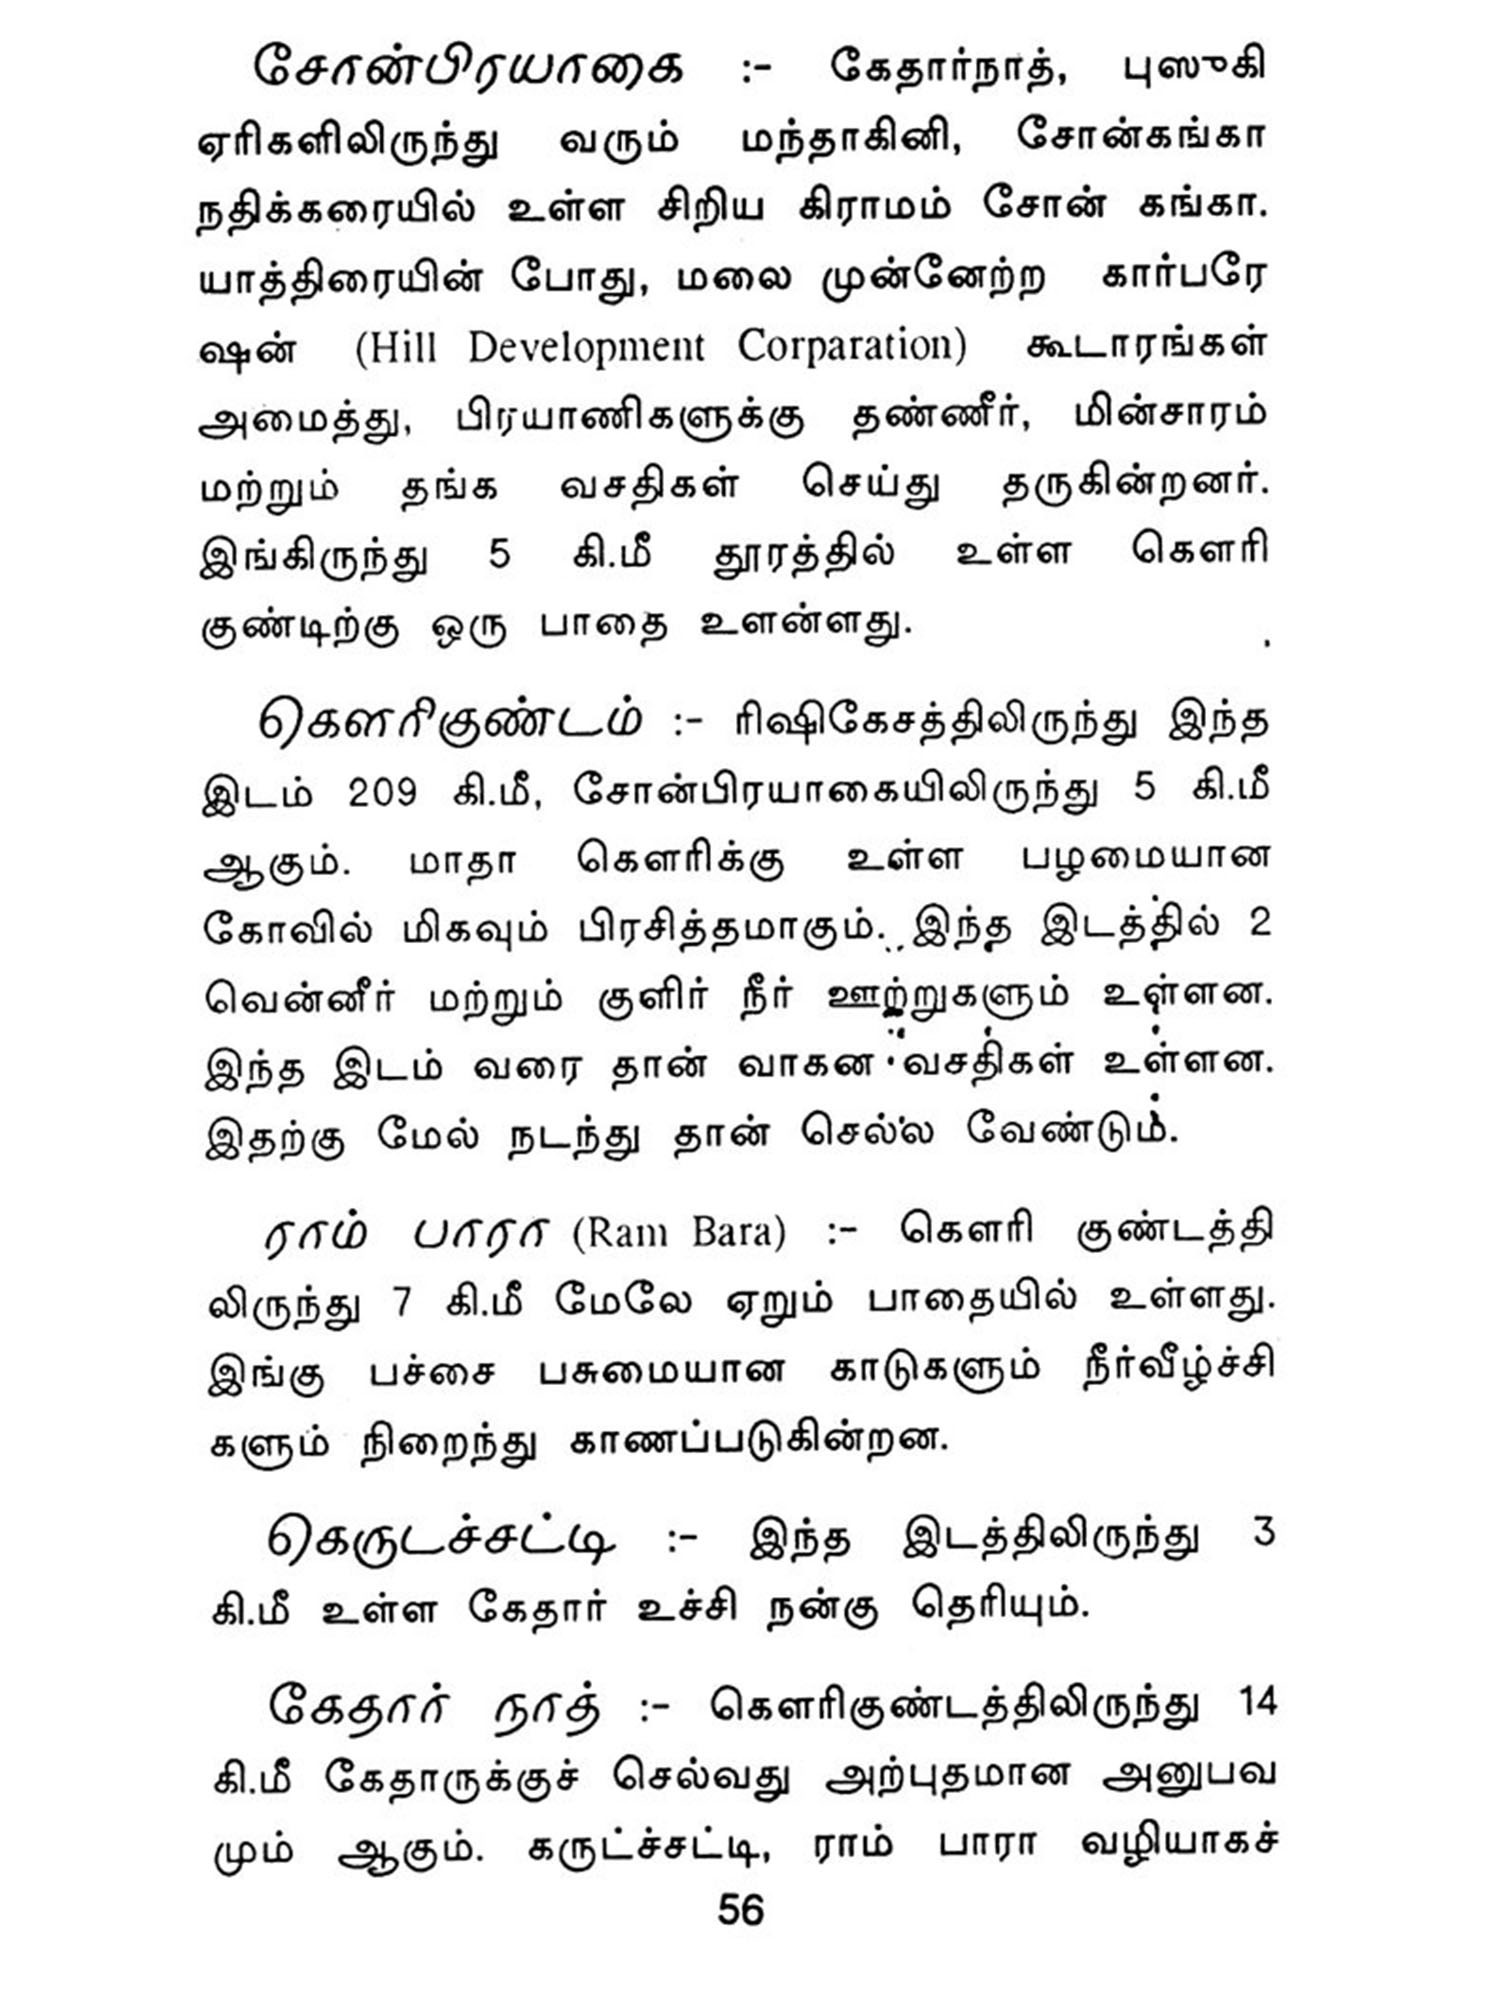 சோன்பிரயாகை :- கேதார்நாத், புஸுகி
ஏரிகளிலிருந்து வரும் மந்தாகினி, சோன்கங்கா
நதிக்கரையில் உள்ள சிறிய கிராமம் சோன் கங்கா.
யாத்திரையின் போது, மலை முன்னேற்ற கார்பரே
ஷன் (Hill Development Corparation) கூடாரங்கள்
அமைத்து, பிரயாணிகளுக்கு தண்ணீர், மின்சாரம்
மற்றும் தங்க வசதிகள் செய்து தருகின்றனர்.
இங்கிருந்து 5 கி.மீ தூரத்தில் உள்ள கௌரி
குண்டிற்கு ஒரு பாதை உளன்ளது.
கௌரிகுண்டம் :- ரிஷிகேசத்திலிருந்து இந்த
இடம் 209 கி.மீ, சோன்பிரயாகையிலிருந்து 5 கி.மீ
ஆகும். மாதா கௌரிக்கு உள்ள பழமையான
கோவில் மிகவும் பிரசித்தமாகும். இந்த இடத்தில் 2
வென்னீர் மற்றும் குளிர் நீர் ஊற்றுகளும் உள்ளன.
இந்த இடம் வரை தான் வாகன வசதிகள் உள்ளன.
இதற்கு மேல் நடந்து தான் செல்ல வேண்டும்.
ராம் பாரா (Ram Bara) :- கௌரி குண்டத்தி
லிருந்து 7 கி.மீ மேலே ஏறும் பாதையில் உள்ளது.
இங்கு பச்சை பசுமையான காடுகளும் நீர்வீழ்ச்சி
களும் நிறைந்து காணப்படுகின்றன.
கெருடச்சட்டி :- இந்த இடத்திலிருந்து 3
கி.மீ உள்ள கேதார் உச்சி நன்கு தெரியும்.
கேதார் நாத் :- கௌரிகுண்டத்திலிருந்து 14
கி.மீ கேதாருக்குச் செல்வது அற்புதமான அனுபவ
மும் ஆகும். கருட்ச்சட்டி, ராம் பாரா வழியாகச்
56